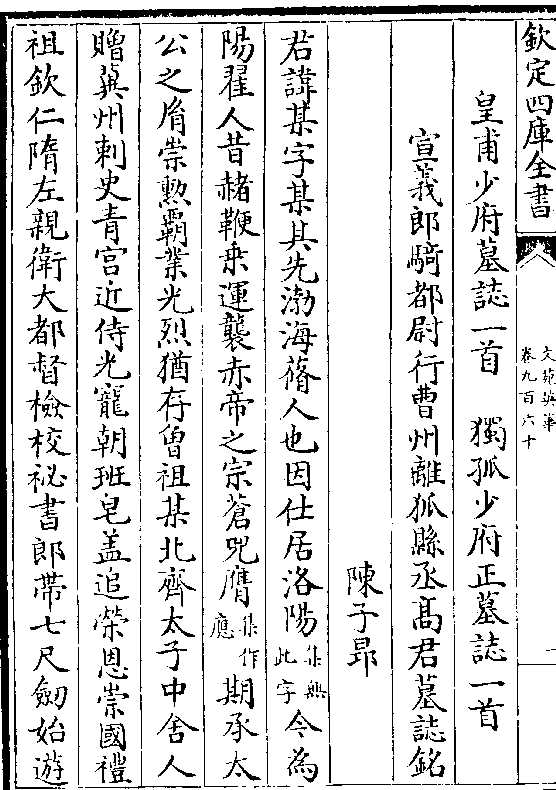 欽定四庫全書
文苑英華
卷九百六十
一
皇甫少府墓誌一首　獨孤少府正墓誌一首
宣義郎騎都尉行曹州離狐縣丞髙君墓誌銘
陳子昂
君諱某字某其先渤海蓨人也因仕居洛陽集無此字今為
陽翟人昔赭鞭乗運襲赤帝之宗蒼兕膺集作應期承太
公之胄崇勲霸業光烈猶存曾祖某北齊太子中舎人
贈冀州刺史青宫近侍光寵朝班皂盖追榮恩崇國禮
祖欽仁隋左親衛大都督檢校祕書郎帶七尺劒始遊